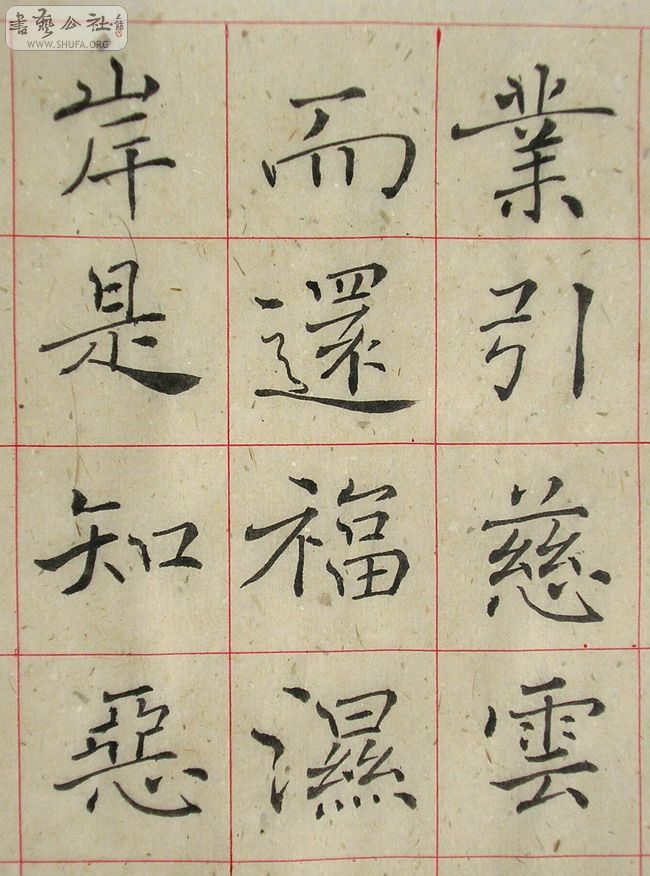 業引慈雲
而還福濕
岸是知惡
書藝公社
WWW.SHUFA.ORG